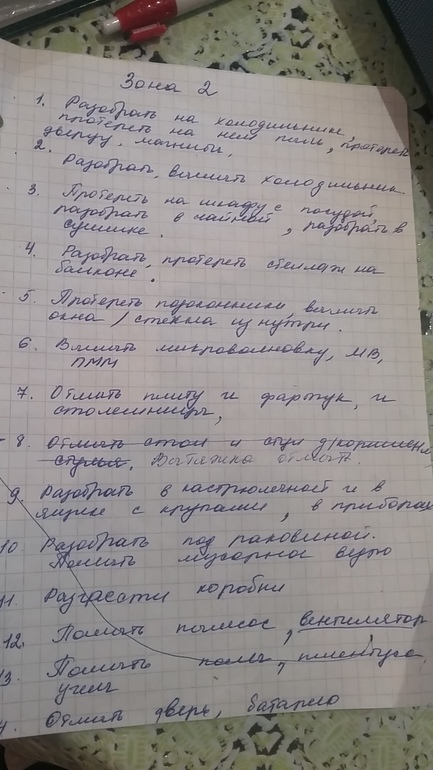 Зона 2
1. Разобрать на холодильнике,
протереть на нем пыль, протереть
дверцу, магниты.
2.
Разобрать, вымыть холодильник
3. Протереть на шкафу с посудой,
разобрать в чайной, разобрать в
сушике.
4. Разобрать, протереть стеллаж на
балконе.
5. Протереть подоконники, вымыть
окна / стекла изнутри.
6. Вымыть микроволновку, МВ,
ПММ
7. Отмыть плиту и фартук, и
столешницу,
8. Отмыть стол и стул д/кормления
стулья, Вытяжка отмыть.
9. Разобрать в кастрюлечной и в
ящике с крупами, в приборах
10 Разобрать под раковиной.
Помыть мусорное ведро
11. Разгрести коробки
12. Помыть пылесос, вентилятор
13. Помыть полы, плинтуса,
углы
Отмыть дверь, батарею